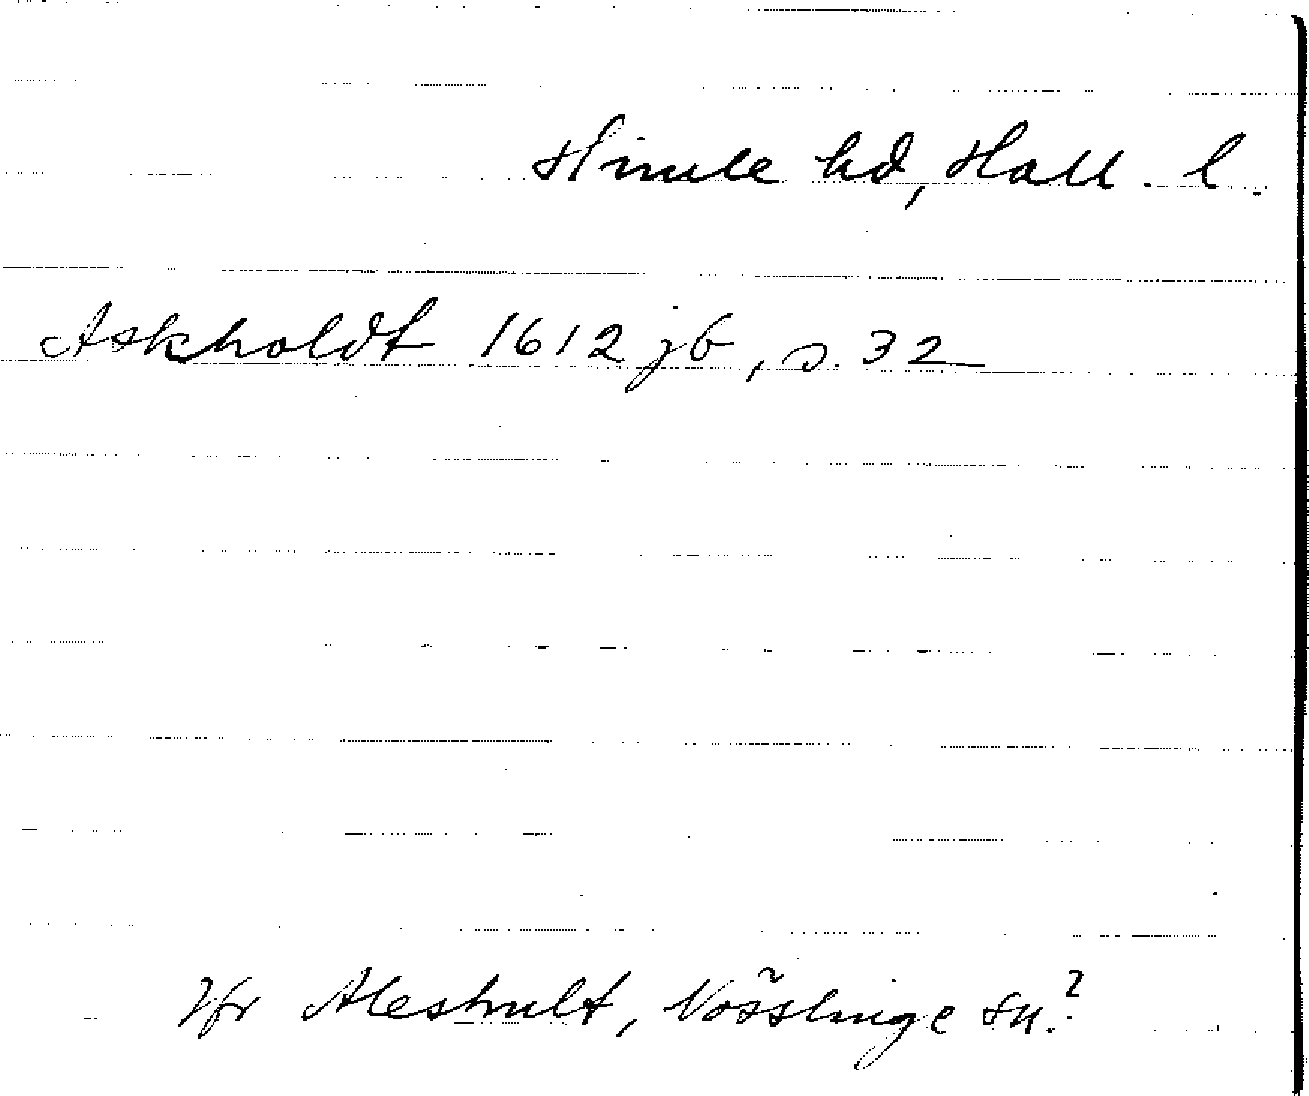 Himle hd, Hall. l.
Askholdt 1612 jb, s. 32
Jfr Aleshult, Nösslinge sn.?